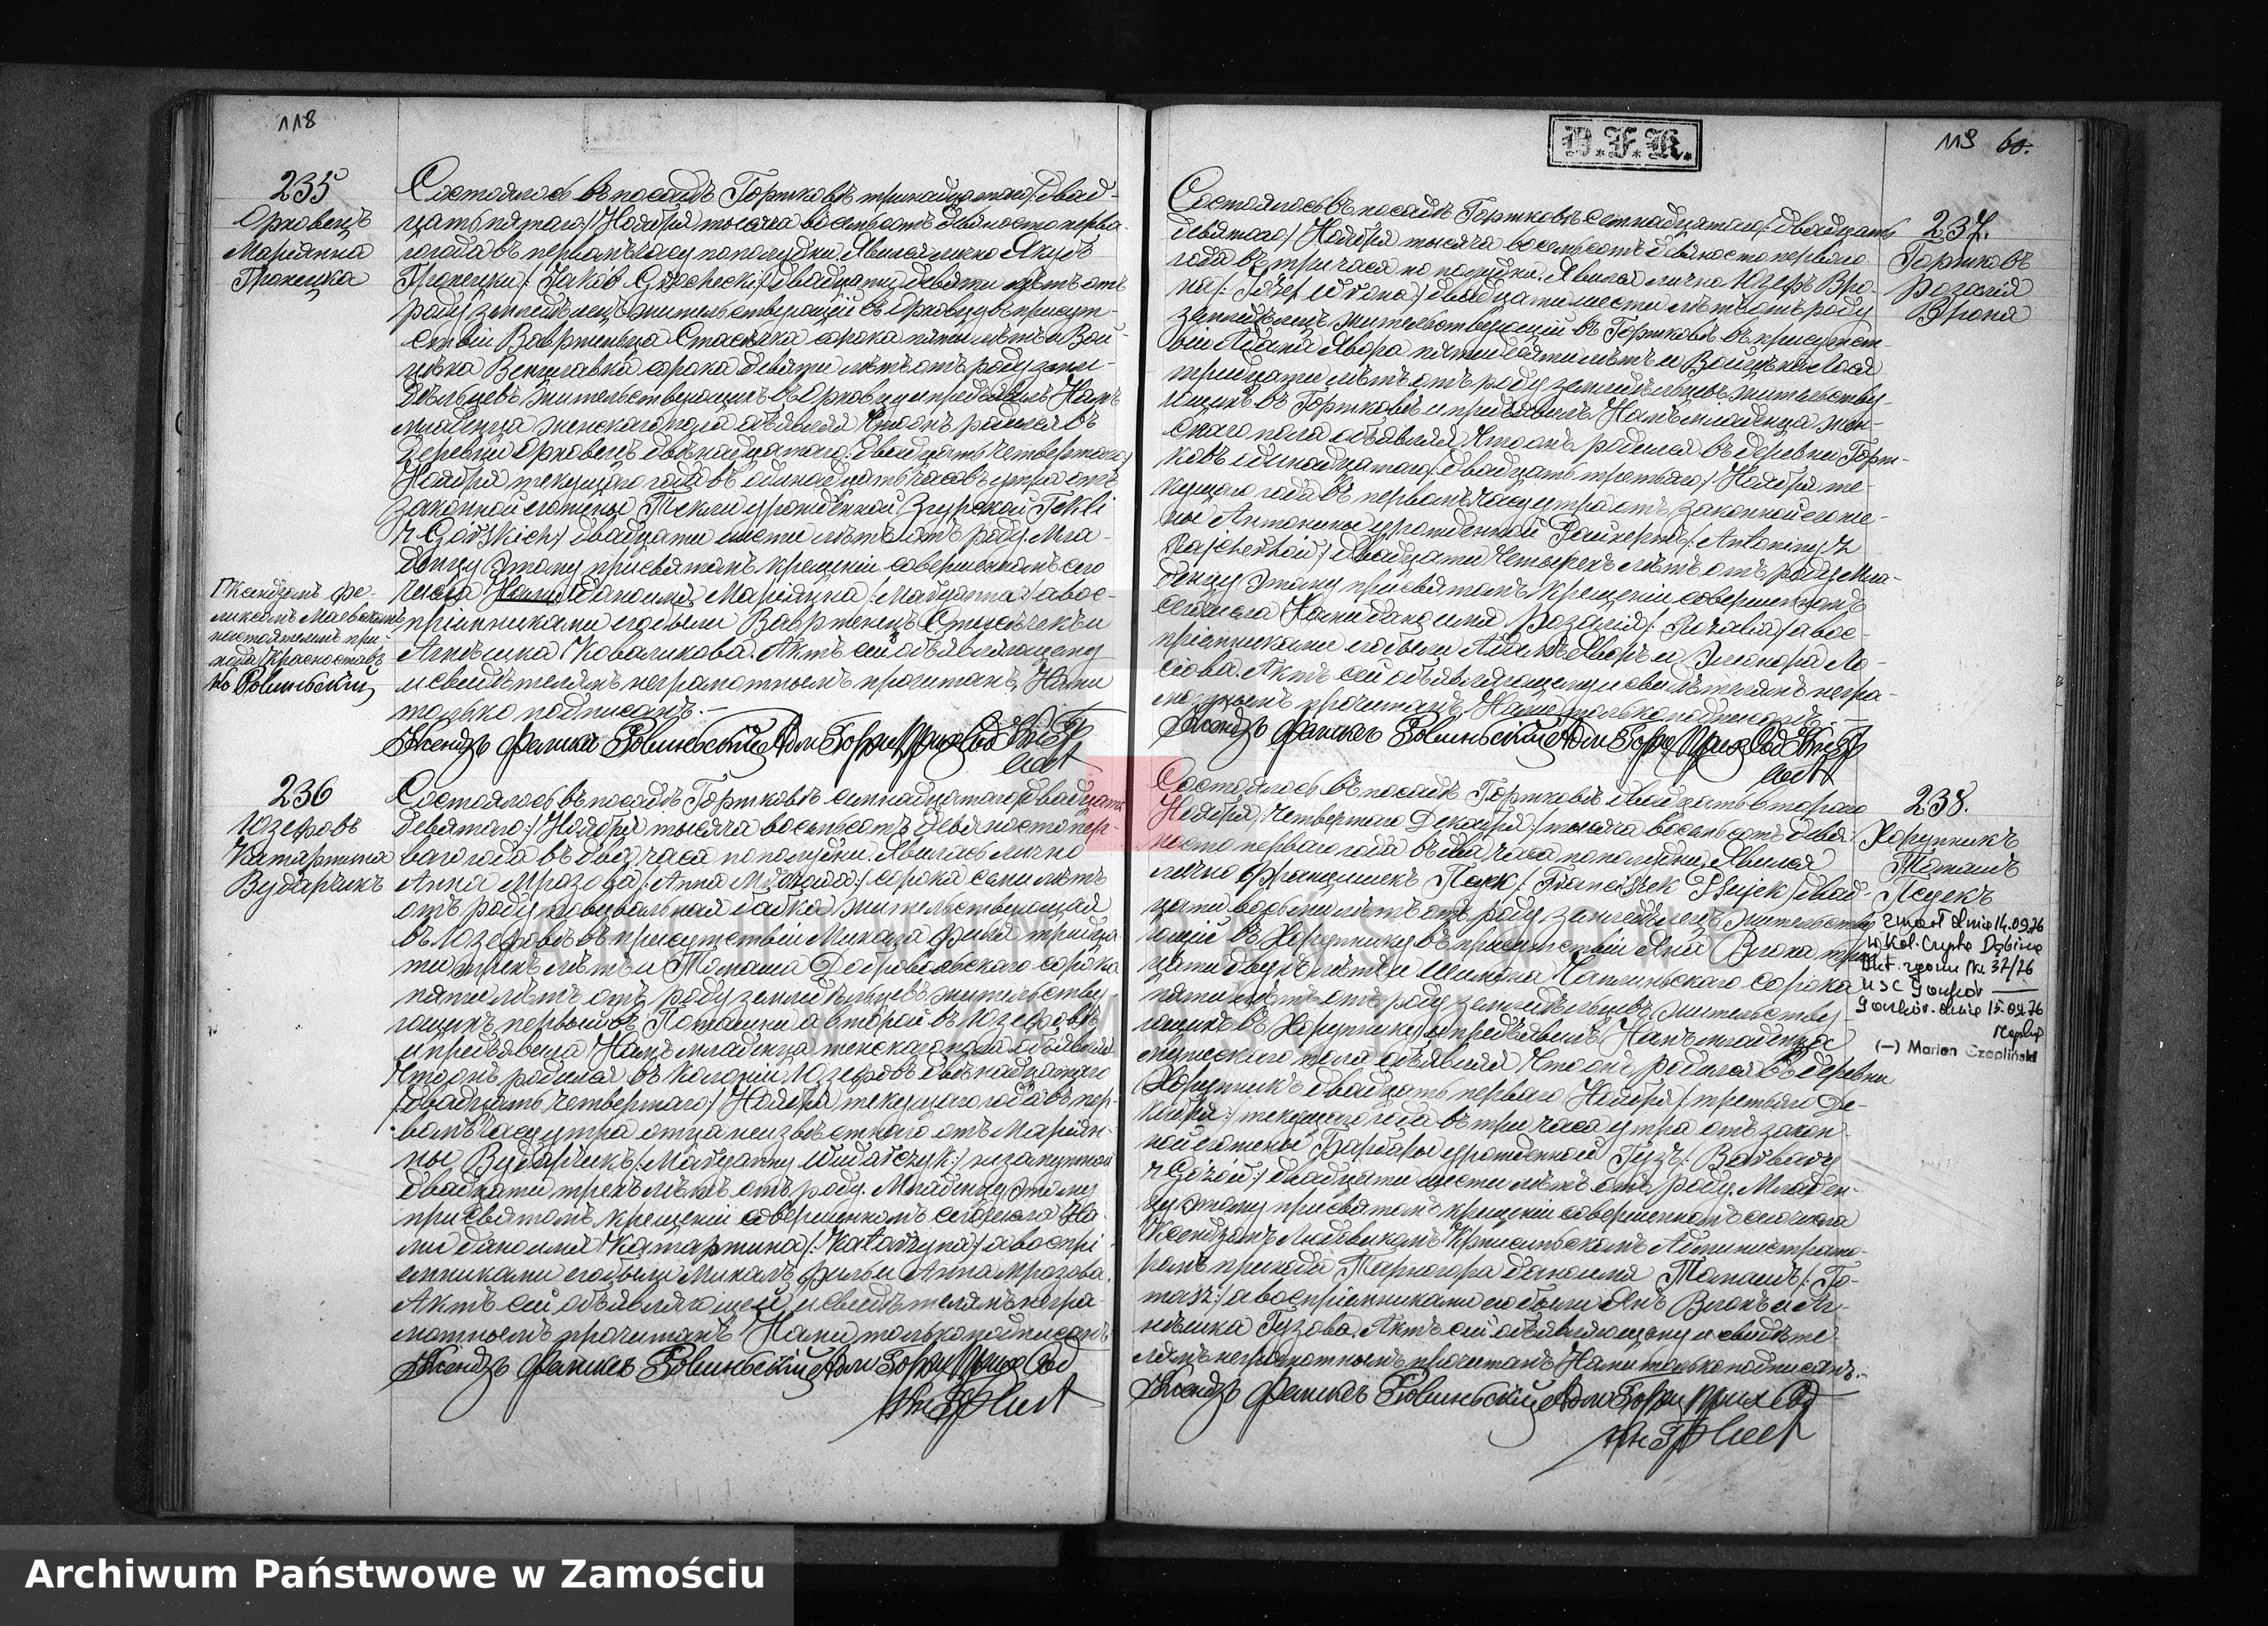 118
235
Орховецъ
Маріянна
Грохецка
Состоялось въ посадѣ Горжковѣ тринадцатаго/двад-
цать пятаго/Ноября тысяча восемьсотъ девяносто перва-
го года въ первомъ часу пополудни. Явился лично Якубъ
Грохецки/: Jakób Grochecki/двадцати девяти лѣтъ отъ
роду земледѣлецъ жительствующій въ Орховцу въ присут-
ствіи Вавржинца Стасѣчка сорока пяти лѣтъ и Вой-
цѣха сорока девяти лѣтъ отъ роду земле-
дѣльцевъ жительствующихъ въ Орховцу и предъявилъ Намъ
младенца женскаго пола объявляя что онъ родился въ
деревни Орховецъ двѣнадцатаго:/двадцать четвертаго/
Ноября текущаго года въ одинадцать часовъ утра отъ
законной его жены Текли урожденной Згурской Tekli
z Górskich:/двадцати шести лѣтъ отъ роду. Мла-
денцу этому при святомъ крещеніи совершенномъ сего
числа Нами дано имя Маріянна/: Maryanna:/а вос-
Ксендзомъ Фе-
ликсомъ
настоятелемъ при-
хода Красноставъ
Кс Ровиньскій
пріемниками его были Вавржинецъ Стасѣчекъ и
Агнѣшка Коваликова. Актъ сей объявляющему
и свидѣтелямъ неграмотнымъ прочитанъ, Нами
только подписанъ.–
Ксендзъ Феликсъ Ровиньскій Адм Горж Прих Сод
236
Юзефовъ
Катаржина
Вударчикъ
Состоялось въ посадѣ Горжковѣ семнадцатаго/двадцать
девятаго:/Ноября тысяча восемьсотъ девяносто пер-
ваго года въ два часа пополудни. Явилась лично
Анна Мрозова/: Anna Mrozowa:/сорока семи лѣтъ
отъ роду повивальная бабка жительствующая
въ Юзефовѣ въ присутствіи Михала Филя тридца-
ти трехъ лѣтъ и Томаша Добровольскаго сорока
пяти лѣтъ отъ роду земледѣльцевъ жительству-
ющихъ первый въ а второй въ Юзефовѣ
и предъявила Намъ младенца женскаго пола объявляя
что онъ родился въ Колоніи Юзефовъ двѣнадцатаго
/двадцать четвертаго/Ноября текущаго года въ пер-
вомъ часу утра отца неизвѣстнаго отъ Маріян-
ны Вударчикъ/: Maryanny Wudarczyk:/незамужной
двадцати трехъ лѣтъ отъ роду. Младенцу этому
при святомъ крещеніи совершенномъ сего числа На-
ми дано имя Катаржина/: Katarzyna:/а воспрі-
емниками его были Михалъ Филь и Анна Мрозова.
Актъ сей объявляющей и свидѣтелямъ негра-
мотнымъ прочитанъ Нами только подписанъ.
Ксендзъ Феликсъ Ровиньскій Адм Горж Прих Сод
D.F.R.
119 60.
237.
Горжковъ
Розалія
Врона
Состоялось въ посадѣ Горжковѣ семнадцатаго/двадцать
девятаго/Ноября тысяча восемьсотъ девяносто перваго
года въ три часа по полудни. Явился лично Юзефъ Вро-
на/: Józef Wrona/двадцати шести лѣтъ отъ роду
земледѣлецъ жительствующій въ Горжковѣ въ присутст-
віи Адама Явора пятидесяти лѣтъ и Войцѣха Лося
тридцати лѣтъ отъ роду земледѣльцевъ жительству-
ющихъ въ Горжковѣ и предъявилъ Намъ младенца жен-
скаго пола объявляя что онъ родился въ деревни Горж-
ковъ одинадцатаго/двадцать третьяго:/Ноября те-
кущаго года въ первомъ часу утра отъ законной его же-
ны Антонины урожденной /: Antoniny z
двадцати четырехъ лѣтъ отъ роду. Мла-
денцу этому при святомъ крещеніи совершенномъ
сего числа Нами дано имя Розалія/: Rozalia/а вос-
пріемниками его были Адамъ Яворъ и Элеонора Ло-
сіова. Актъ сей объявляющему и свидѣтелямъ негра-
мотнымъ прочитанъ Нами только подписанъ.–
Ксендзъ Феликсъ Ровиньскій Адм Горж Прих Сод
238.
Хорупникъ
Томашъ
Псуекъ
Состоялось въ посадѣ Горжковѣ двадцать втораго
Ноября/четвертаго Декабря:/тысяча восемьсотъ девя-
носто перваго года въ два часа пополудни. Явился
лично Францишекъ /: Franciszek Psujek/двад-
цати восьми лѣтъ отъ роду земледѣлецъ жительству-
ющій въ Хорупнику въ присутствіи Яна Влока трид-
цати двухъ лѣтъ и Шимона Чаплиньскаго сорока
пяти лѣтъ отъ роду земледѣльцевъ жительству-
ющихъ въ Хорупнику и предъявилъ Намъ младенца
мужескаго пола объявляя что онъ родился въ деревни
Хорупникъ двадцать перваго Ноября/: третьяго Де-
кабря:/текущаго года въ три часа утра отъ закон-
ной его жены Барбары урожденной Гузъ/: Barbary
z двадцати шести лѣтъ отъ роду. Младен-
цу этому при святомъ крещеніи совершенномъ сего числа
Ксендзомъ Людвикомъ Администрато-
ромъ прихода Тарногора дано имя Томашъ/: To-
masz:/а воспріемниками его были Янъ Влокъ и Аг-
нѣшка Гузова. Актъ сей объявляющему и свидѣте-
лямъ неграмотнымъ прочитанъ Нами только подписанъ.–
Ксендзъ Феликсъ Ровиньскій Адм Горж Прих Сод
zmarł dnia 14.09.76
w Kol. Dębina
Akt. zgonu Nr 37/76
USC Gorzków
Gorzków. dnia 15.09.76
(–) Marian Czapliński
Archiwum Państwowe w Zamościu